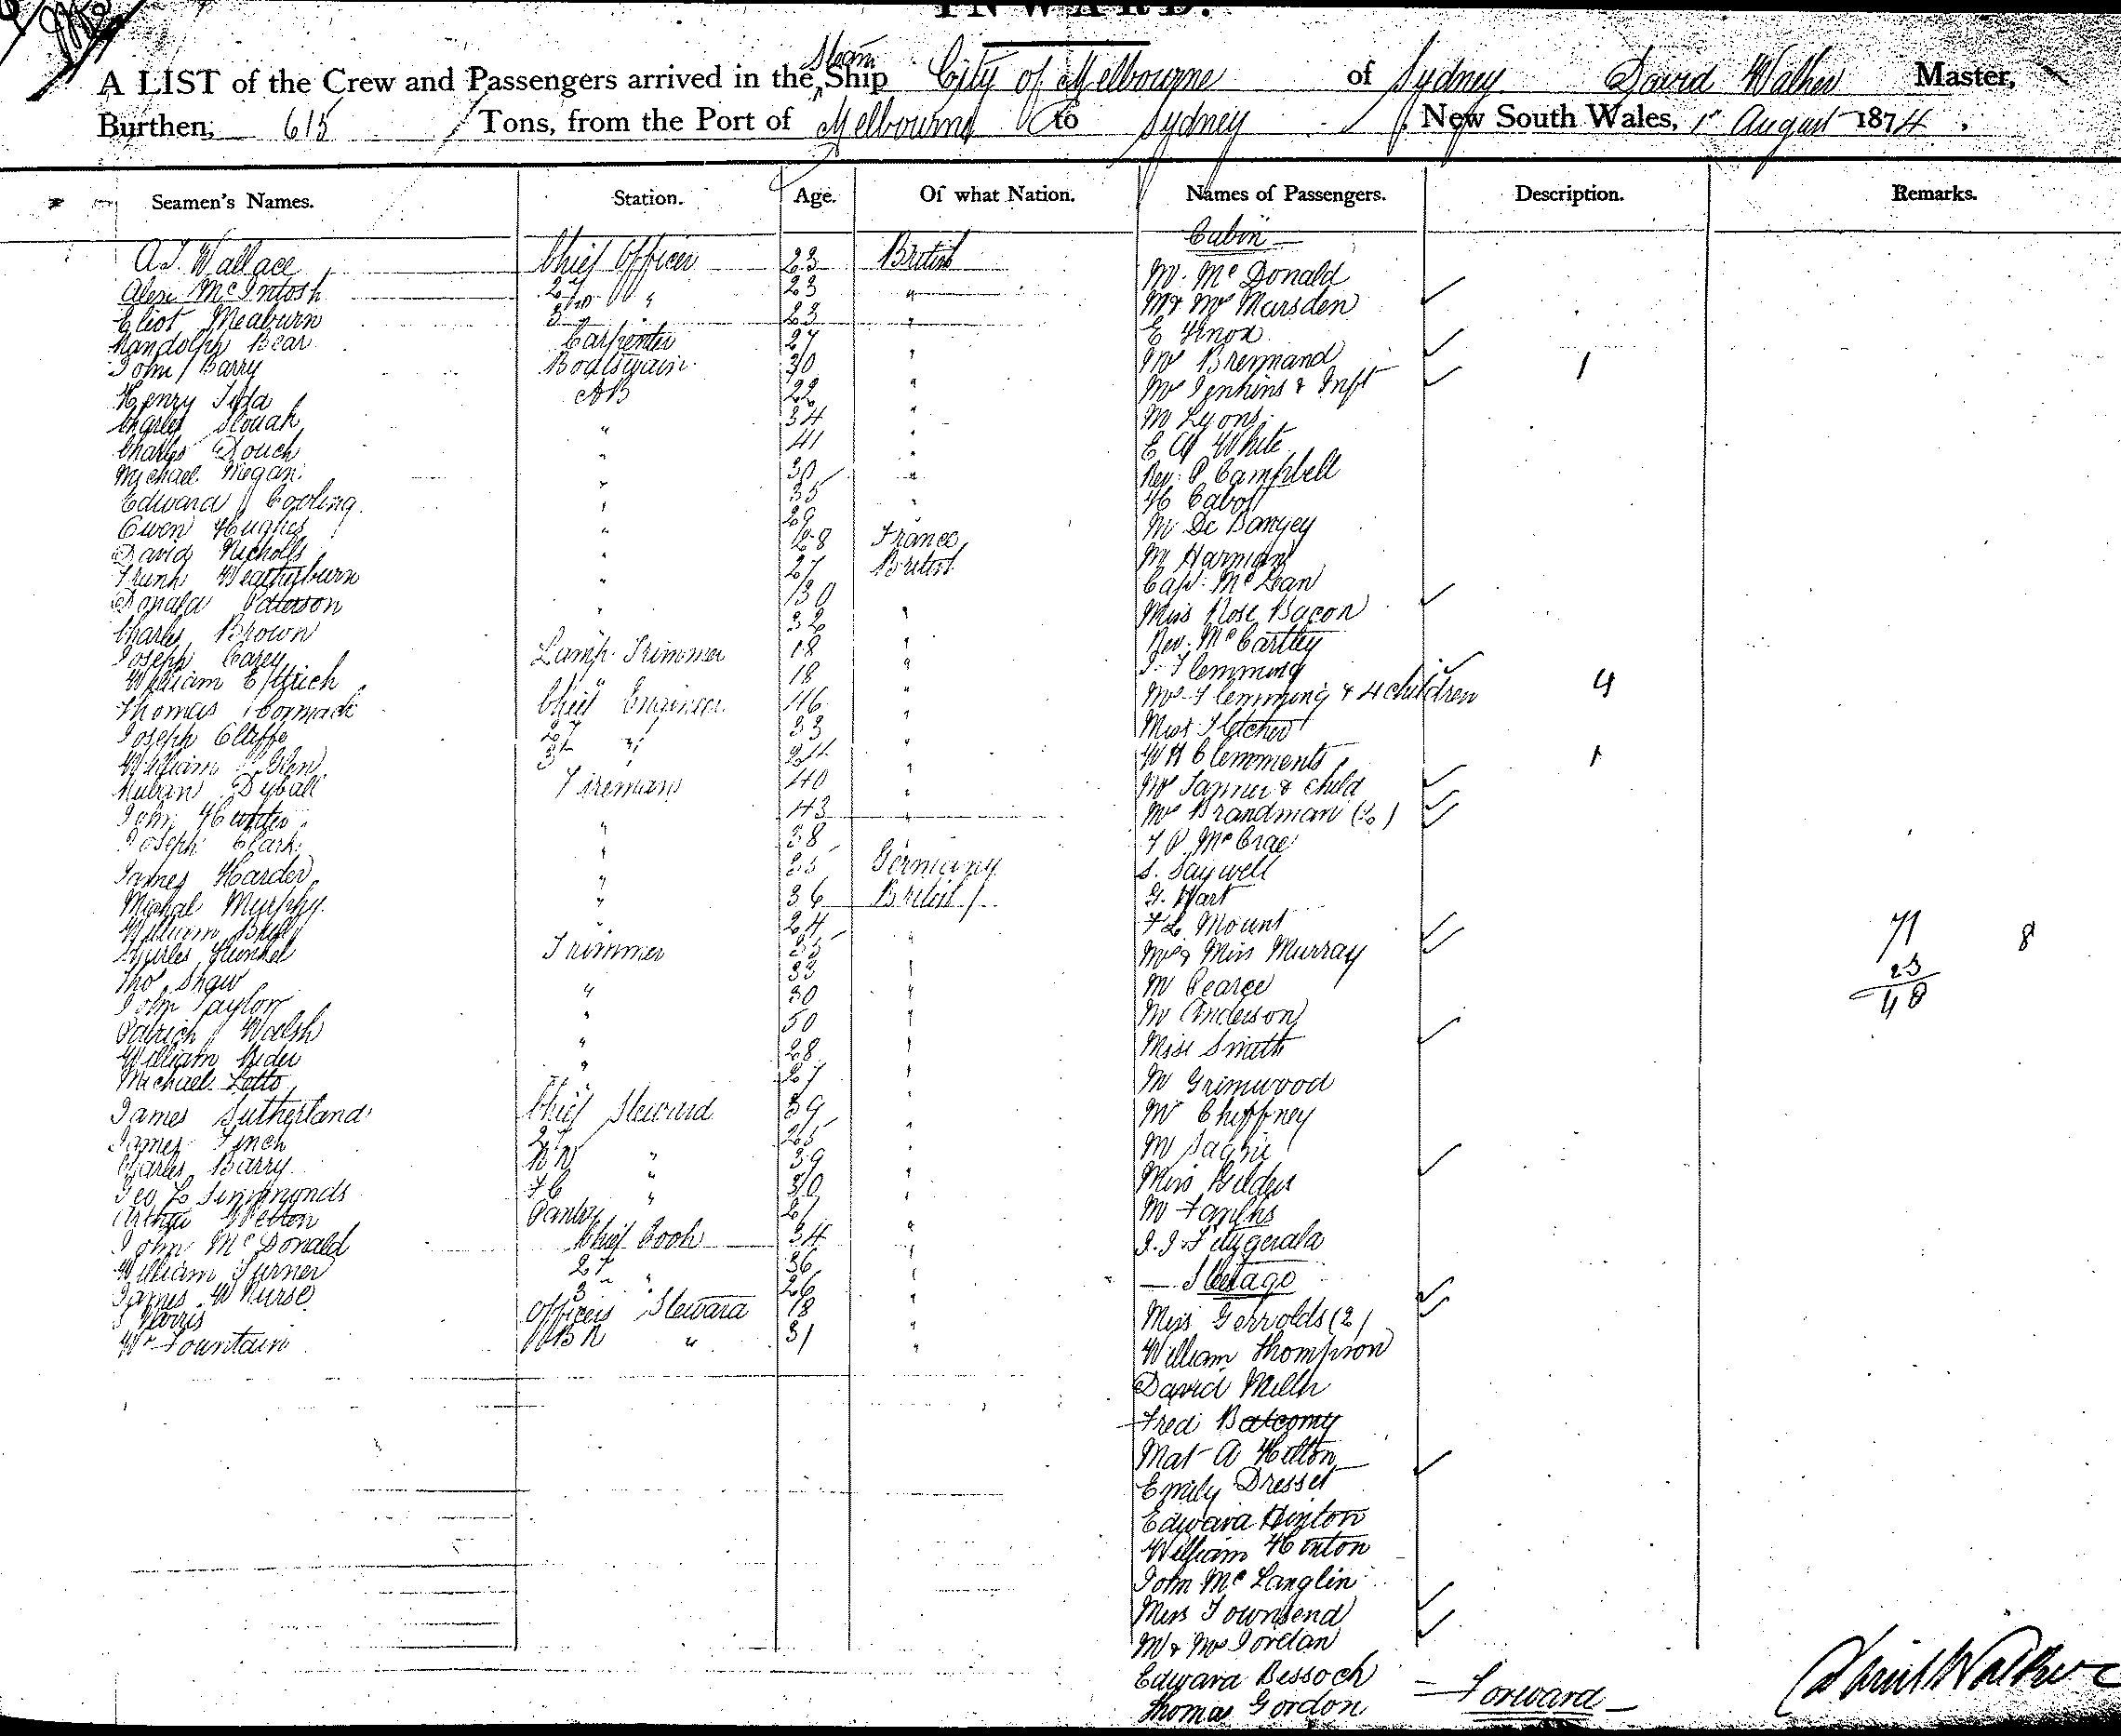 INWARD.
A LIST of the Crew and Passengers arrived in the Steam Ship City of Melbourne of Sydney David Walker Master,
Burthen, 615 Tons, from the Port of Melbourne to Sydney, New South Wales, 1st August 1874,
Seamen's Names. Station. Age. Of what Nation. Names of Passengers. Description. Remarks.
Cabin
A.J. Wallace Chief Officer 23 British
Mr. McDonald
Alexr McIntosh 2d " 23 "
Mr & Mrs Marsden
Eliot Meaburn 3rd " 23 "
E Knox
Randolph Bear Carpenter 27 "
Mrs Brennand
John Barry Boatswain 30 "
Mrs Jenkins & Inft 1
Henry AB 22 "
M Lyons
Charles Slouch " 34 "
E A White
Charles Douch " 41 "
Rev. P Campbell
Michael Megan " 30 "
H Cabot
Edward Cooling " 35 "
Owen Hughes " 29 "
M De Banyey
David Nicholls " 28 France
M Harman
Frank Weatherburn " 27 British
Capt. McLean
Donald Paterson " 30 "
Miss Rose Bacon
Charles Brown " 32 "
Rev. McCartley
Joseph Carey Lamp Trimmer 18 "
J Flemming
William " 18 "
Mrs Flemming & 4 children 4
Thomas Cormack Chief Engineer 46 "
Miss Fletcher
Joseph Cliffe 2d " 33 "
William Glen 3d " 24 "
W H Clemments
Dyball Fireman 40 "
Mrs Tanner & child 1
John Hunter 43 "
Mrs Brandman (2)
Joseph Clark " 38 "
J P McCrae
James Harder " 35 Germany
S. Saywell
Michal Murphy " 36 British
G. Hart
William " 24 "
F L Mount
Charles Kunkel Trimmer 23 "
Mrs & Miss Murray 71 8
Thos Shaw 33 "
M Pearce 23
John Taylor " 30 "
Mr Anderson 48
Patrick Walsh " 50 "
Miss Smith
William Rider " 28 "
M Grimwood
Michael Lotto " 27 "
James Sutherland Chief Steward 39 "
Mr Chiffney
James Finch 2d 25 "
M
Charles Barry " 39 "
Miss Gilder
Geo L Simmonds F C " 30 "
Arthur Welton Pantry 21 "
M
John McDonald Chief Cook 34 "
J.J. Fitzgerald
William Turner 2d " 36 "
Steerage
James W Nurse 3 " 26 "
Miss Gerrolds (2)
J Harris Officers Steward 18 "
William Thompson
Wm Fountain " 31 "
David Milln
Fred Balcomy
Mat A Hilton
Emily Dresset
Edward Hinton
William Hinton
John McLanglin
Miss Townsend
Mr & Mrs Jordan
Edward Bessoch
Thomas Gordon
Forward
David Walker